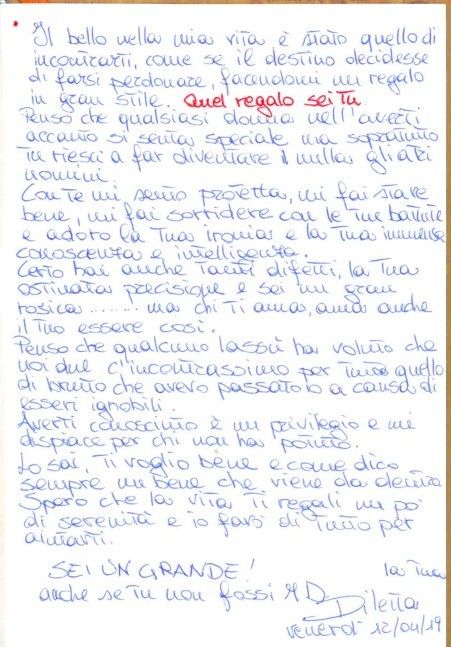 Il bello nella mia vita è stato quello di
incontrarti, come se il destino decidesse
di farsi perdonare, facendomi un regalo
in gran stile. Quel regalo sei Tu
Penso che qualsiasi donna nell'averti
accanto si senta speciale ma soprattutto
tu riesci a far diventare il nulla gli altri
uomini.
Con te mi sento protetta, mi fai stare
bene, mi fai sorridere con le tue battute
e adoro la Tua ironia e la Tua immensa
conoscenza e intelligenza.
Certo hai anche Tanti difetti, la Tua
ostinata precisione e sei un gran
rosica ........ ma chi Ti ama, ama anche
il Tuo essere così.
Penso che qualcuno lassù ha voluto che
noi due c'incontrassimo per tutto quello
di brutto che avevo passato a causa di
esseri ignobili.
Averti conosciuto è un privilegio e mi
dispiace per chi non ha potuto.
Lo sai, Ti voglio bene e come dico
sempre un bene che viene da dentro
Spero che la vita Ti regali un po'
di serenità e io farò di Tutto per
aiutarti.
SEI UN GRANDE! la Tua
anche se Tu non fossi M.D. Diletta
venerdì 12/04/19